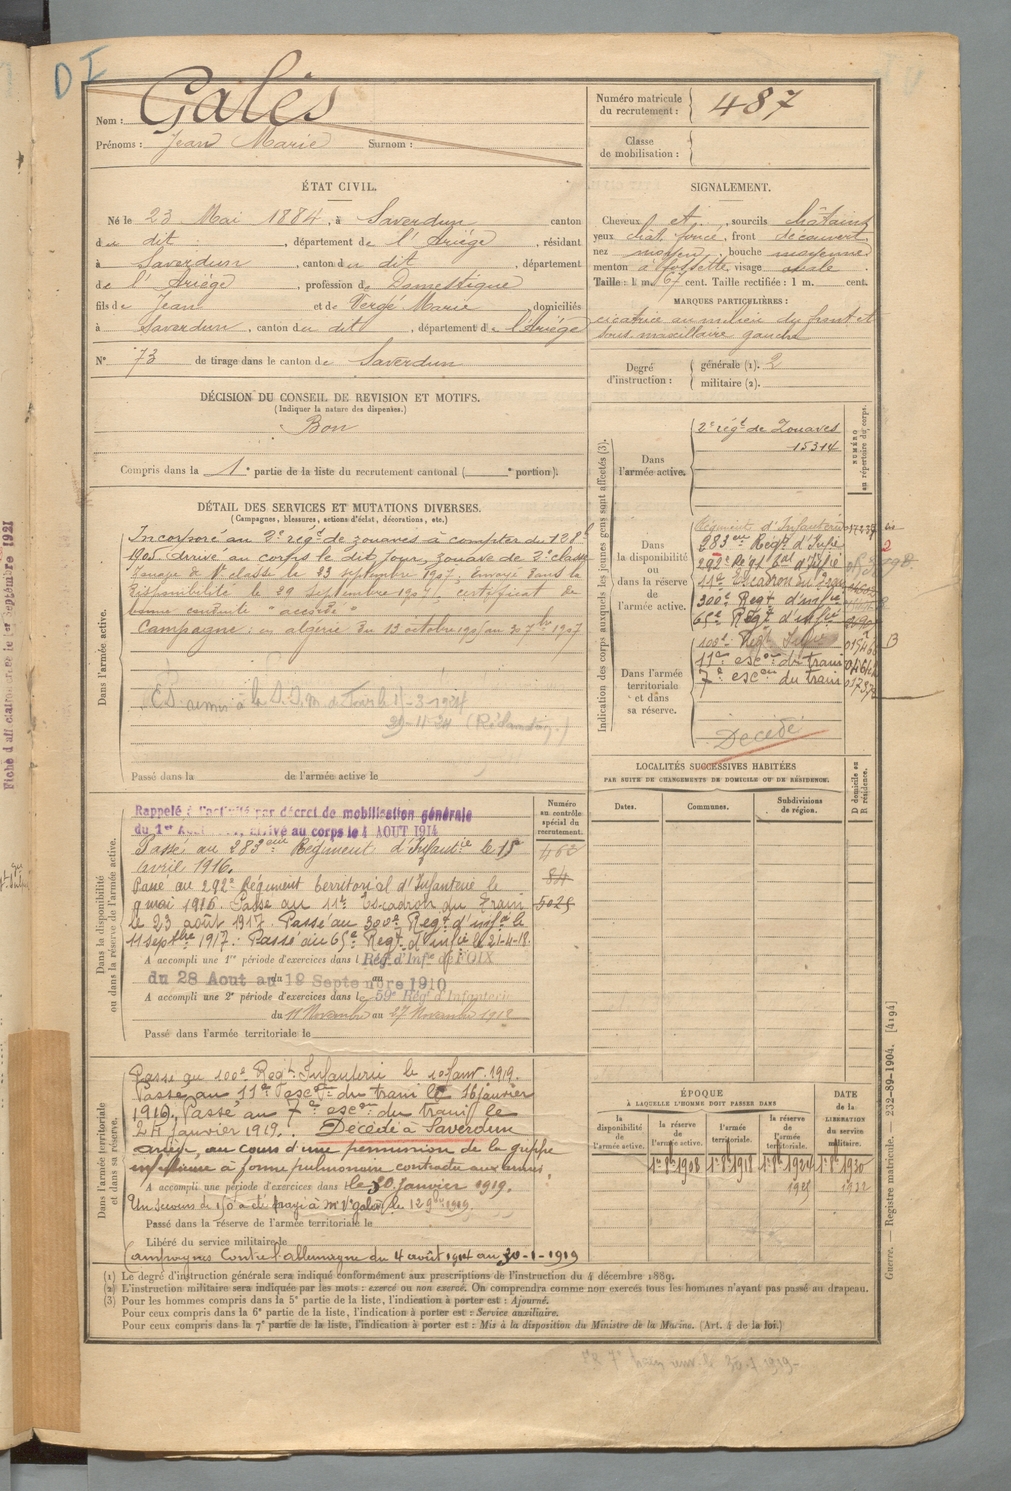 D I
Nom : Galès
Prénoms : Jean Marie Surnom :
Numéro matricule du recrutement : 487
Classe de mobilisation :
ÉTAT CIVIL.
Né le 23 Mai 1884, à Saverdun canton
du dit, département de l'Ariège, résidant
à Saverdun, canton du dit, département
de l'Ariège, profession de Domestique
fils de Jean et de Vergé Marie, domiciliés
à Saverdun, canton du dit, département de l'Ariège
N° 73 de tirage dans le canton de Saverdun
SIGNALEMENT.
Cheveux et, sourcils châtains
yeux chât. foncé, front découvert
nez moyen, bouche moyenne
menton à fossette, visage ovale
Taille : 1 m. 67 cent. Taille rectifiée : 1 m. cent.
MARQUES PARTICULIÈRES :
cicatrice au milieu du front et
sous maxillaire gauche
Degré d'instruction : générale (1). 2
militaire (2).
DÉCISION DU CONSEIL DE REVISION ET MOTIFS.
(Indiquer la nature des dispenses.)
Bon
Compris dans la 1e partie de la liste du recrutement cantonal ( e portion).
DÉTAIL DES SERVICES ET MUTATIONS DIVERSES.
(Campagnes, blessures, actions d'éclat, décorations, etc.)
Dans l'armée active.
Incorporé au 2e régt de zouaves à compter du
1905 arrivé au corps le dit jour, zouave de 2e classe
Zouave de 1e classe le 23 septembre 1907. envoyé dans la
disponibilité le 29 septembre 1907, certificat de
bonne conduite "accordé"
Campagne : en algérie du 13 octobre 1905 au
29-11-24
Passé dans la de l'armée active le
Indication des corps auxquels les jeunes gens sont affectés (3).
NUMÉRO au répertoire du corps.
Dans l'armée active.
2e régt de Zouaves
15314
Dans la disponibilité ou dans la réserve de l'armée active.
Régiment d'Infanterie
283eme Regt d'Infie
292e Régt tal d'Infie
11e Escadron du Train
300e Regt d'infie
65e Regt d'infie
Dans l'armée territoriale et dans sa réserve.
100e Regt Infie
11e escon du train
7e escon du train
Décédé
LOCALITÉS SUCCESSIVES HABITÉES
PAR SUITE DE CHANGEMENTS DE DOMICILE OU DE RÉSIDENCE.
Dates. Communes. Subdivisions de région. D domicile ou R résidence.
Dans la disponibilité ou dans la réserve de l'armée active.
Numéro au contrôle spécial du recrutement.
Rappelé à l'activité par décret de mobilisation générale
du 1er Août, arrivé au corps le 4 AOUT 1914
Passé au 283eme Régiment d'Infantie le 15
avril 1916.
Passé au 292e Régiment territorial d'Infanterie le
9 mai 1916. Passé au 11e Escadron du Train
le 23 août 1917. Passé au 300e Regt d'infie le
11 septbre 1917. Passé au 65e Regt d'infie le 21-4-18.
84
5025
A accompli une 1re période d'exercices dans l Rég. d'Infie de FOIX
du 28 Aout au 19 Septembre 1910
A accompli une 2e période d'exercices dans le 59e Régt d'Infanterie
du 11 Novembre au 27 Novembre 1912
Passé dans l'armée territoriale le
Dans l'armée territoriale et dans sa réserve.
Passé au 100e Regt Infanterie le 10 Janv. 1919.
Passé au 11e escon du train le 16 janvier
1919. Passé au 7e escon du train le
24 janvier 1919. Décédé à Saverdun
ariège, au cours d'une permission de la grippe
infectieuse à forme pulmonaire contractée aux armées
A accompli une période d'exercices dans le 30 Janvier 1919.
Un secours de 150f a été payé à Mme Ve Galès le 12 9bre 1919.
Passé dans la réserve de l'armée territoriale le
Libéré du service militaire le
Campagnes Contre l'allemagne du 4 août 1914 au 30-1-1919
ÉPOQUE
À LAQUELLE L'HOMME DOIT PASSER DANS
la disponibilité de l'armée active. la réserve de l'armée active. l'armée territoriale. la réserve de l'armée territoriale. DATE de la LIBERATION du service militaire.
1er 8bre 1908 1er 8bre 1918 1er 8bre 1924 1er 8bre 1930
(1) Le degré d'instruction générale sera indiqué conformément aux prescriptions de l'instruction du 4 décembre 1889.
(2) L'instruction militaire sera indiquée par les mots : exercé ou non exercé. On comprendra comme non exercés tous les hommes n'ayant pas passé au drapeau.
(3) Pour les hommes compris dans la 5e partie de la liste, l'indication à porter est : Ajourné.
Pour ceux compris dans la 6e partie de la liste, l'indication à porter est : Service auxiliaire.
Pour ceux compris dans la 7e partie de la liste, l'indication à porter est : Mis à la disposition du Ministre de la Marine. (Art. 4 de la loi.)
Guerre. — Registre matricule. — 232-89-1904. [4194]